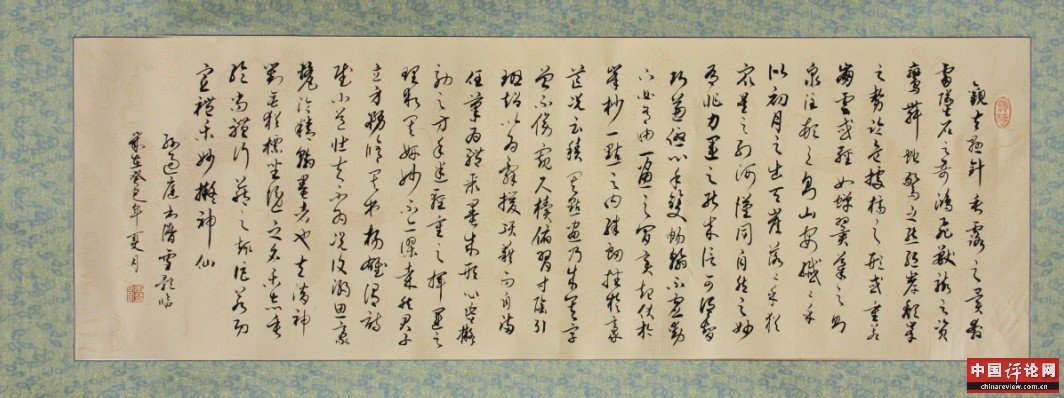 觀夫懸針垂露之異奔
雷墜石之奇鴻飛獸駭之資
鸞舞蛇驚之態絕岸頹峯
之勢臨危據槁之形或重若
崩雲或輕如蟬翼導之則
泉注頓之則山安纖纖乎
似初月之出天崖落落乎猶
眾星之列河漢同自然之妙
有非力運之能成信可謂智
巧兼優心手雙暢翰不虛動
下必有由一畫之間變起伏於
峯杪一點之內殊衄挫於豪
芒況云積其點畫乃成其字
曾不傍窺尺牘俯習寸陰引
班超以為辭援項籍而自滿
任筆為體聚墨成形心昏擬
効之方手迷揮運之
理求其妍妙不亦謬哉然君子
立身務修其本楊雄謂詩
賦小道壯夫不為況復溺思豪
氂淪精翰墨者也夫潛神
對奕猶標坐隱之名樂志垂
綸尚體行藏之趣詎若功
宣禮樂妙擬神仙
孫過庭書譜雪 臨
歲在癸巳年夏月
中国评论网
chinareview.com.cn